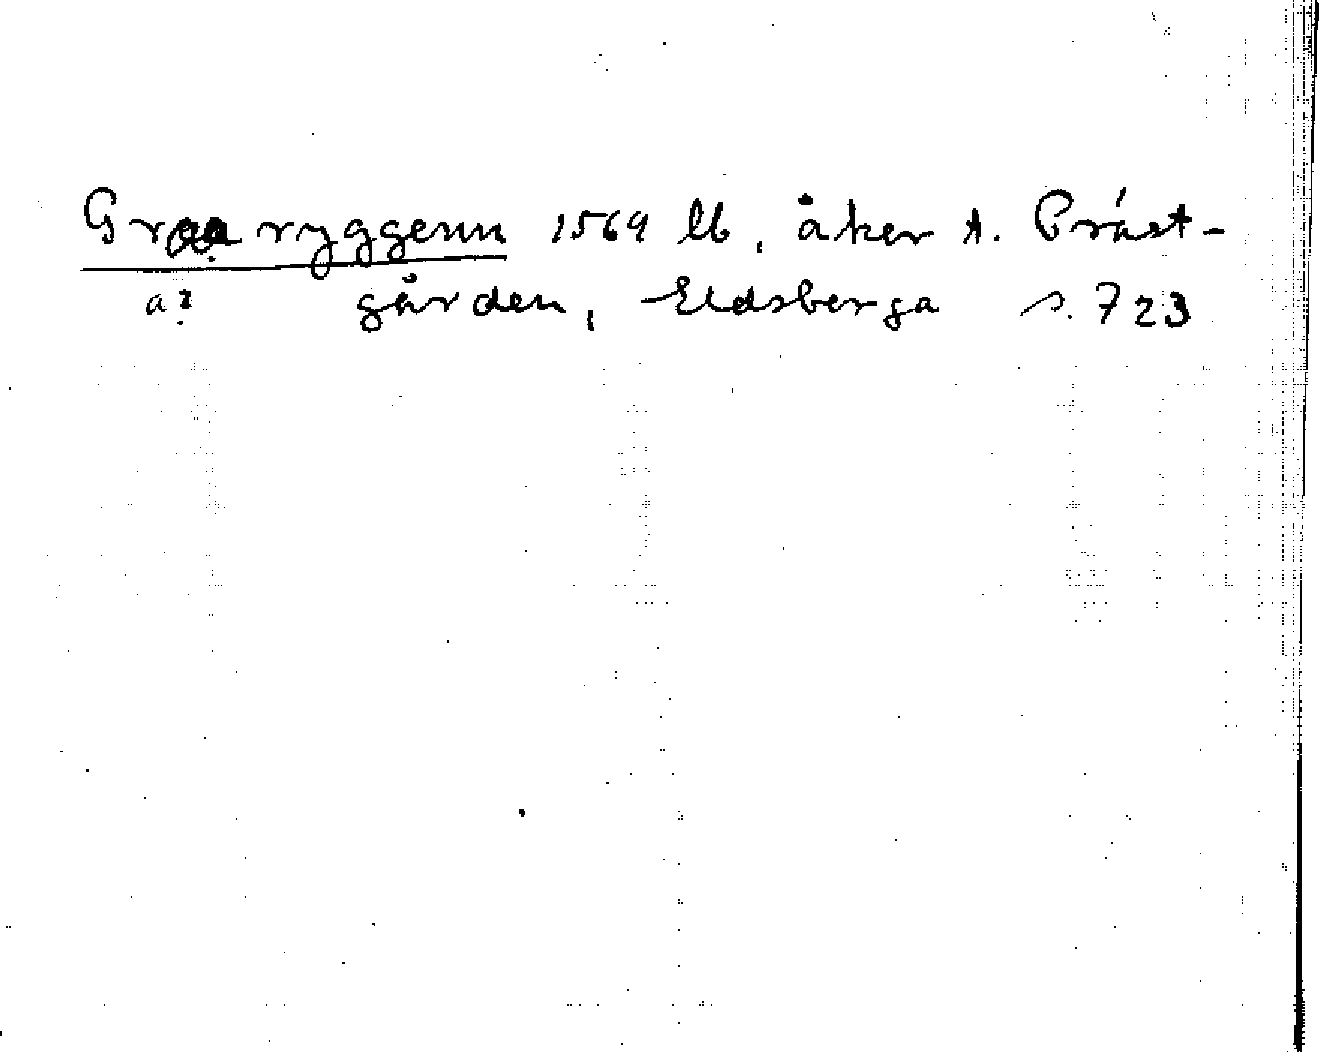 Graa ryggenn 1569 lb, åker t. Präst-
a? gården, Eldsberga s. 723